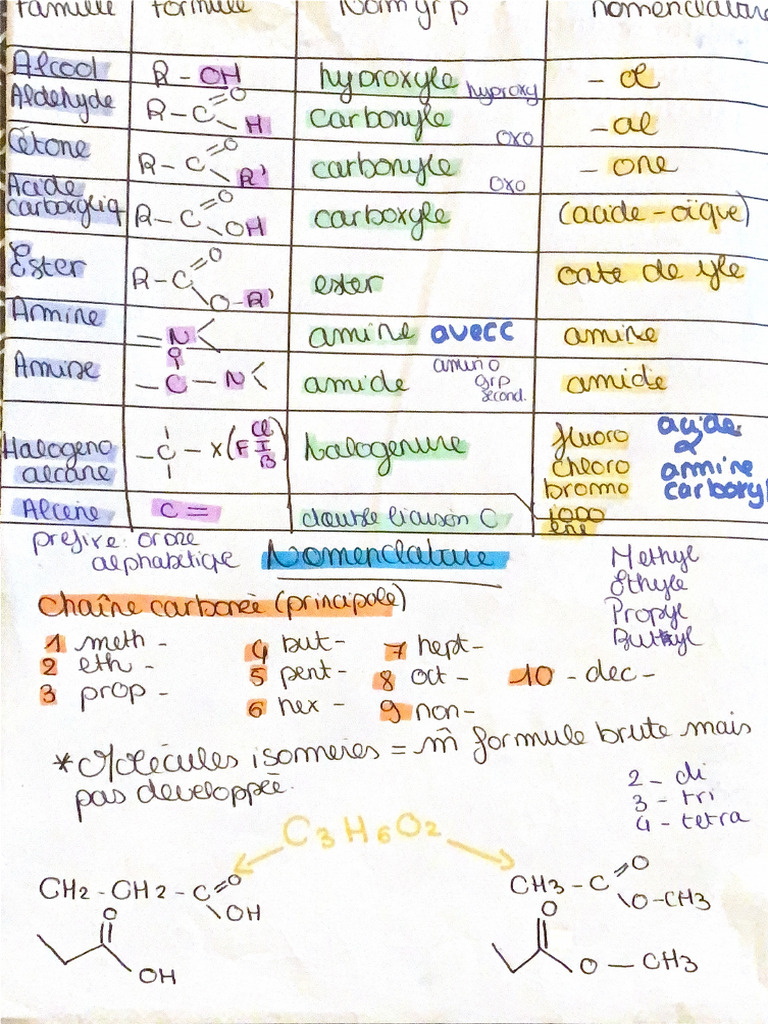 Famille formule Nom grp nomenclature
Alcool R - OH hyproxyle hyproxy - ol
Aldehyde R - C =O - H carbonyle oxo - al
Cétone R - C =O - R' carbonyle oxo - one
Acide carboxyliq R - C =O - OH carboxyle (acide - oïque)
Ester R - C =O O - R' ester oate de yle
Amine = N < amine avecc amine
Amise O - C - N < amide amino grp second. amide
Halogeno alcane - C - x (F Cl I B) halogenure fluoro chloro bromo iodo
acide & amine carboxyl
Alcène C = double liaison C ène
prefixe: ordre alphabétique
Nomenclature
Methyl
Ethyle
Propyl
Buthyl
Chaîne carbonée (principale)
1 meth - 4 but - 7 hept -
2 eth - 5 pent - 8 oct - 10 - dec -
3 prop - 6 hex - 9 non -
* Molécules isomeres = m̂ formule brute mais
pas developpée.
2 - di
3 - tri
4 - tetra
C3H6O2
CH2 - CH2 - C =O OH
CH3 - C =O O - CH3
O OH
O O - CH3